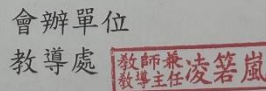 會辦單位
教導處
教師兼
教導主任
凌箬嵐